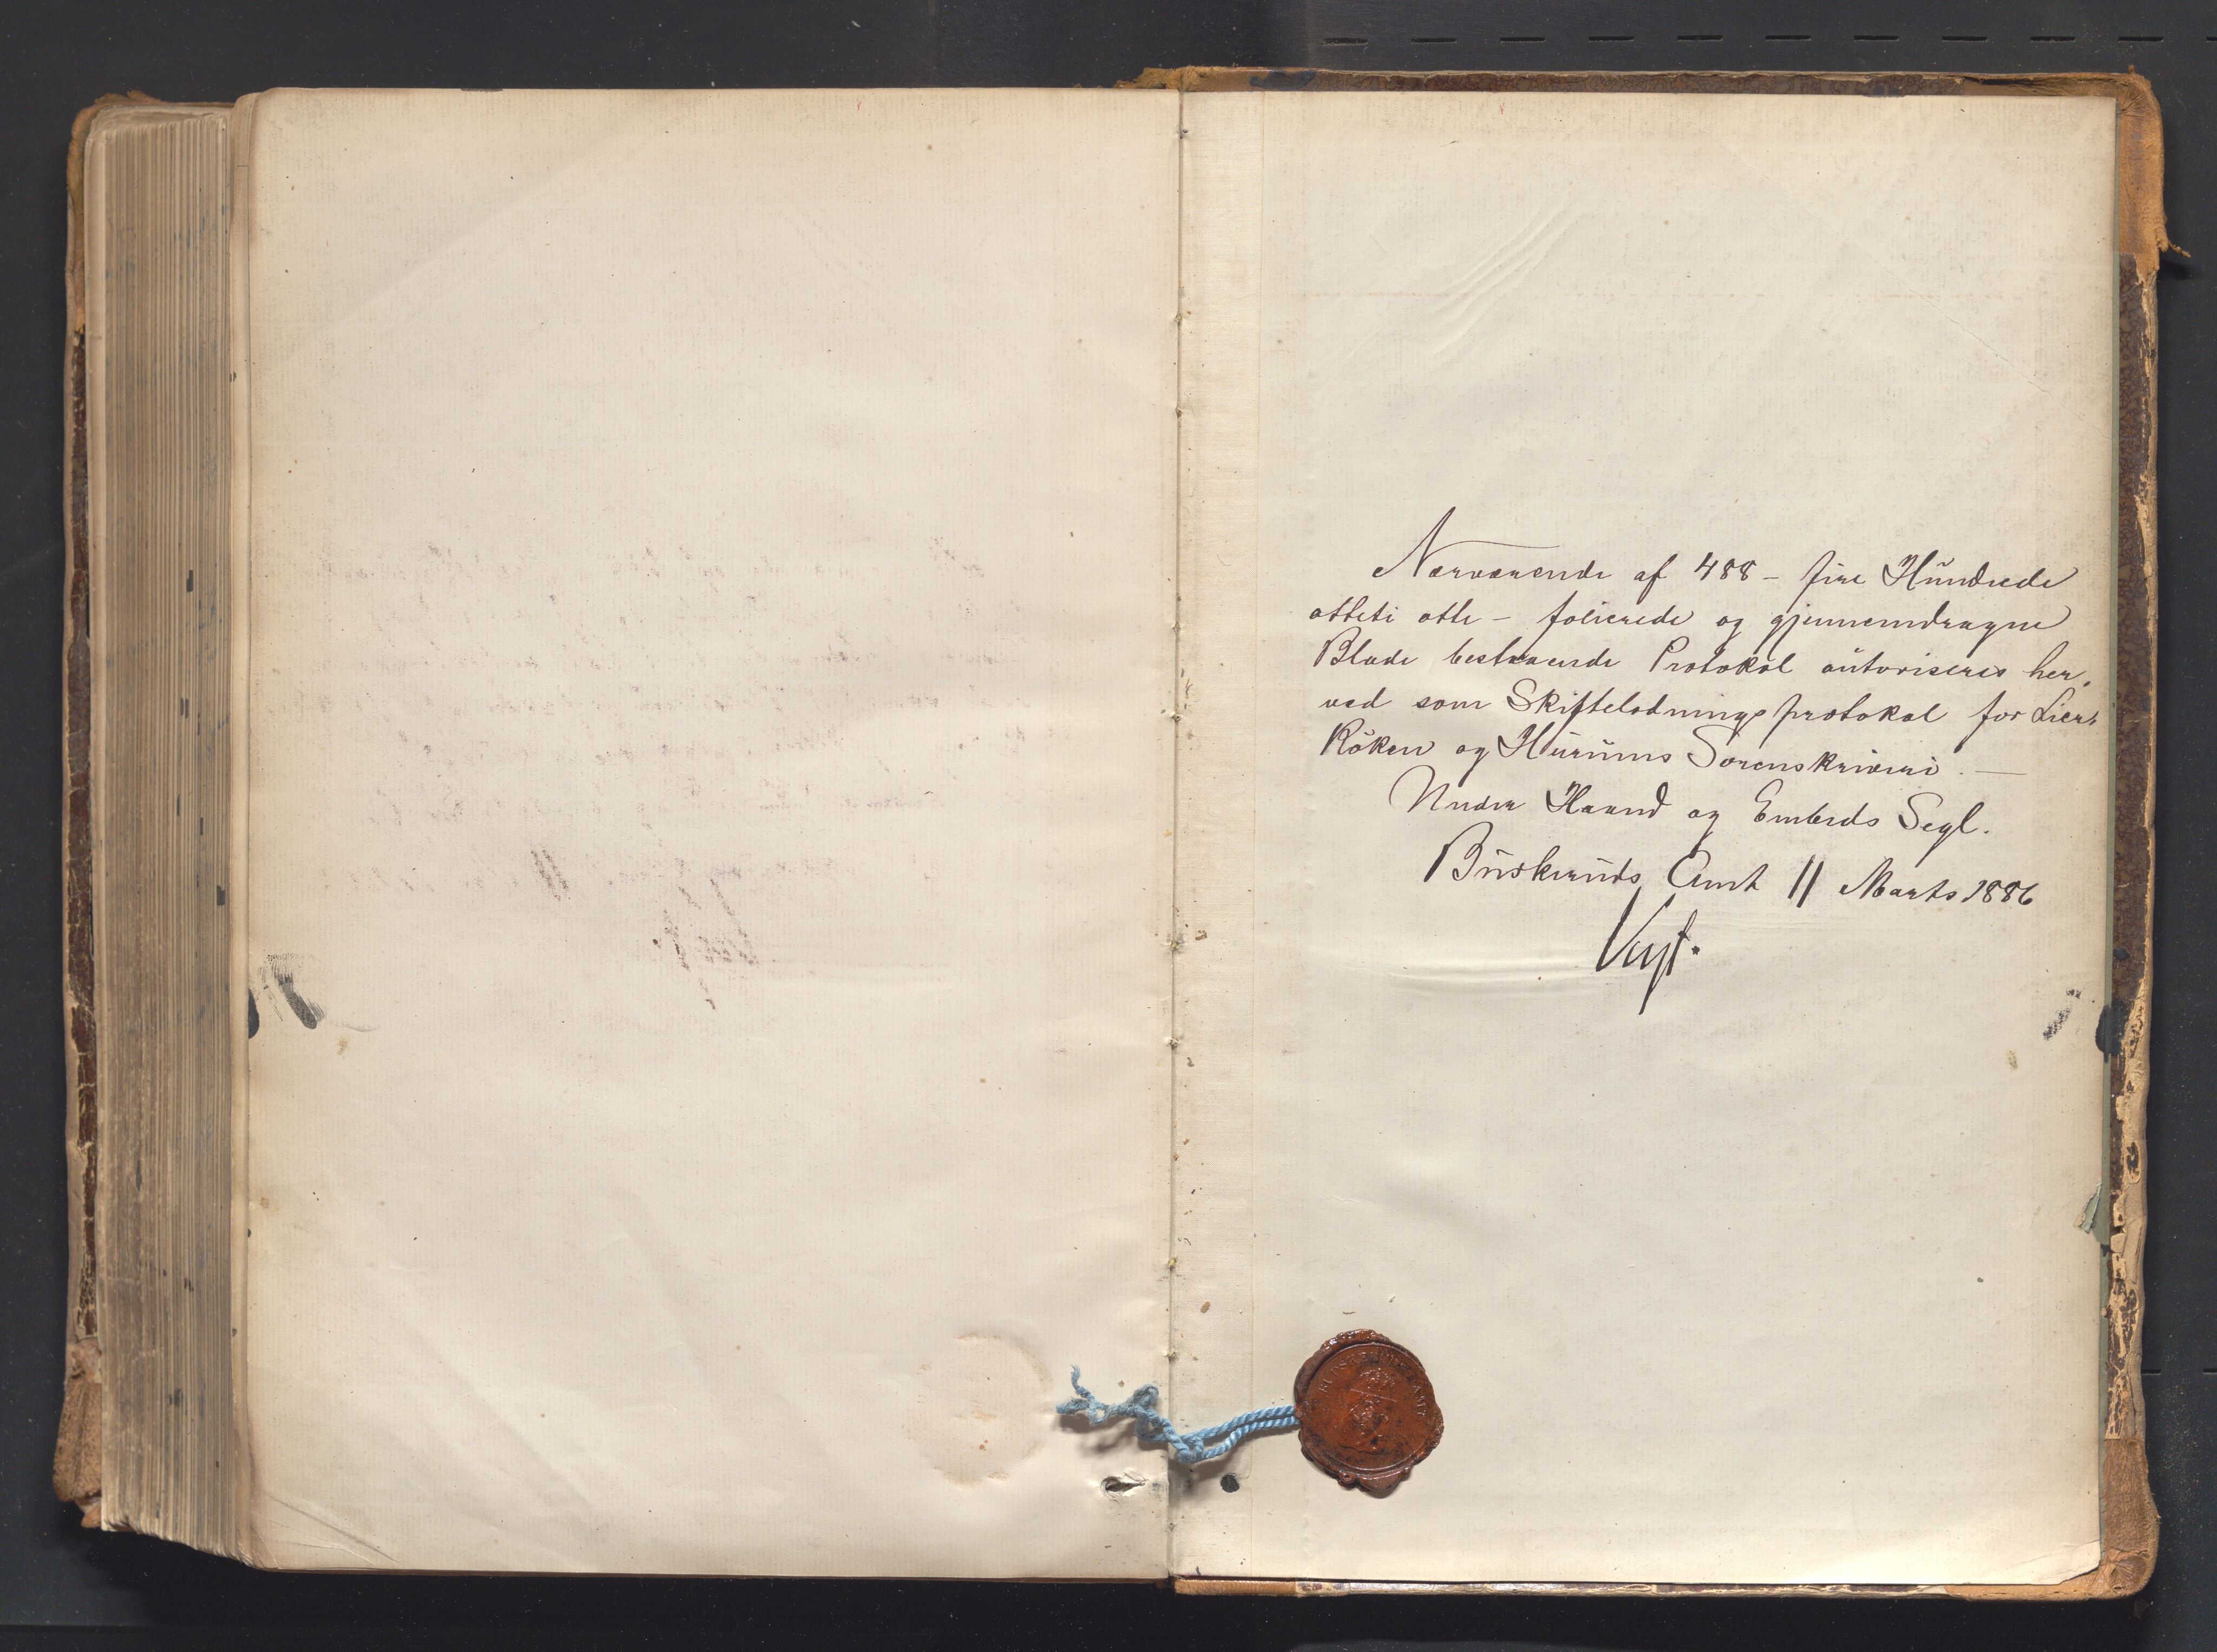 Nærværende af 488 – fire Hundrede
otteti otte – folierede og gjennemdragne
Blade bestaaende Protokol autoriseres her-
ved som Skifteludningsprotokol for Lier,
Röken og Hurums Sorenskriveri. —
Under Haand og Embeds Segl.
Buskeruds Amt 11 Marts 1886
Vogt.